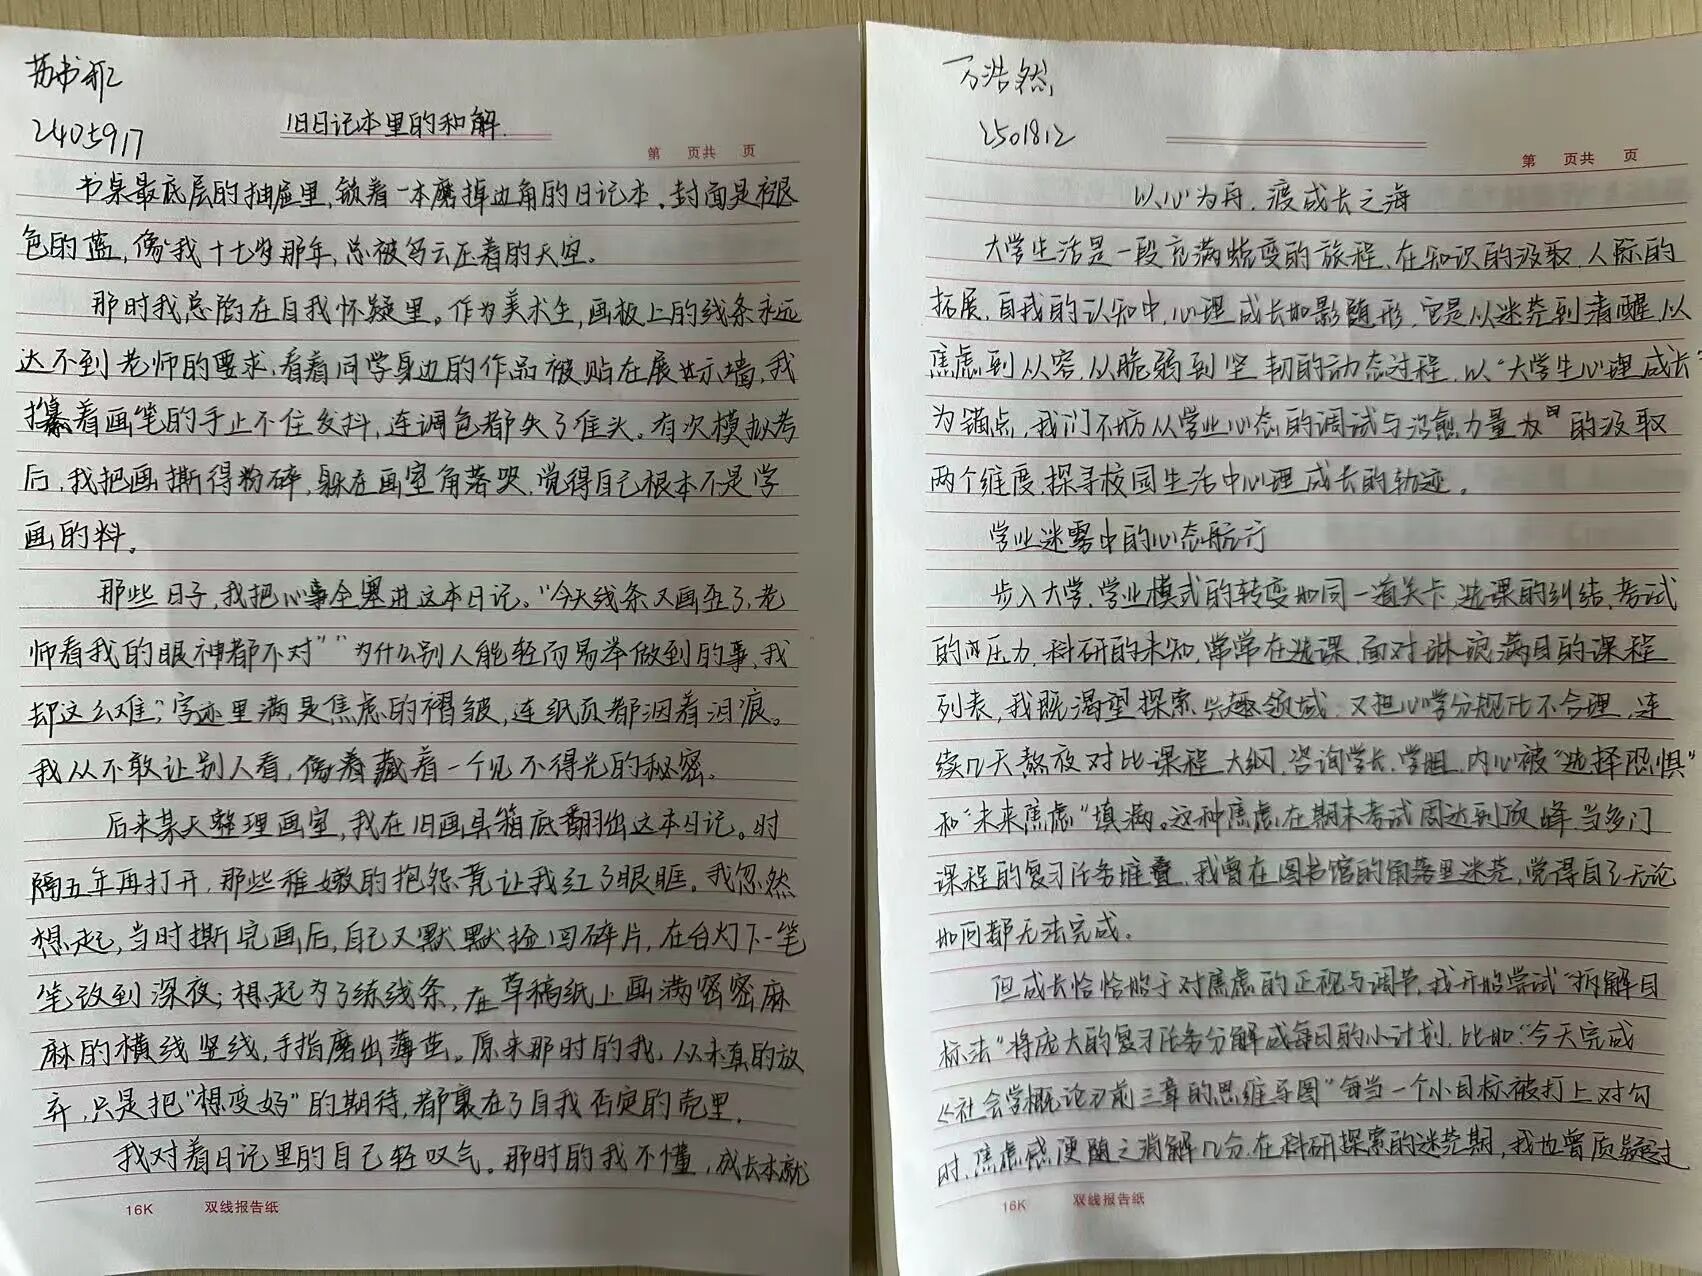 苏书
2405917
旧日记本里的和解.
第 页共 页
书桌最底层的抽屉里,锁着一本磨掉边角的日记本。封面是褪
色的蓝,像我十七岁那年,总被乌云压着的天空。
那时我总陷在自我怀疑里。作为美术生,画板上的线条永远
达不到老师的要求,看着同学身边的作品被贴在展示墙,我
攥着画笔的手止不住发抖,连调色都失了准头。有次模拟考
后,我把画撕得粉碎,躲在画室角落哭,觉得自己根本不是学
画的料。
那些日子,我把心事全塞进这本日记。“今天线条又画歪了,老
师看我的眼神都不对”“为什么别人能轻而易举做到的事,我
却这么难”,字迹里满是焦虑的褶皱,连纸页都洇着泪痕。
我从不敢让别人看,像着藏着一个见不得光的秘密。
后来某天整理画室,我在旧画具箱底翻出这本日记。时
隔五年再打开,那些稚嫩的抱怨竟让我红了眼眶。我忽然
想起,当时撕完画后,自己又默默捡回碎片,在台灯下一笔
笔改到深夜;想起为了练线条,在草稿纸上画满密密麻
麻的横线竖线,手指磨出薄茧。原来那时的我,从未真的放
弃,只是把“想变好”的期待,都裹在了自我否定的壳里.
我对着日记里的自己轻叹气。那时的我不懂,成长本就
16K 双线报告纸
万浩然
2501812
第 页共 页
以心为舟,渡成长之海
大学生活是一段充满蜕变的旅程,在知识的汲取,人际的
拓展,自我的认知中,心理成长如影随形,它是从迷茫到清醒,从
焦虑到从容,从脆弱到坚韧的动态过程,以“大学生心理成长”
为锚点,我们不妨从学业心态的调试与治愈力量为的汲取
两个维度,探寻校园生活中心理成长的轨迹。
学业迷雾中的心态航行
步入大学,学业模式的转变如同一道关卡,选课的纠结,考试
的压力,科研的未知,常常在选课,面对琳琅满目的课程
列表,我既渴望探索兴趣领域,又担心学分规比不合理,连
续几天熬夜对比课程大纲,咨询学长,学姐,内心被“选择恐惧”
和“未来焦虑”填满。这种焦虑在期末考试周达到顶峰,当多门
课程的复习任务堆叠,我曾在图书馆的角落里迷茫,觉得自己无论
如何都无法完成。
但成长恰恰始于对焦虑的正视与调节,我开始尝试“拆解目
标法”将庞大的复习任务分解成每日的小计划,比如:“今天完成
《社会学概论》前三章的思维导图”每当一个小目标被打上对勾
时,焦虑感便随之消解几分,在科研探索的迷茫期,我也曾质疑过
16K 双线报告纸